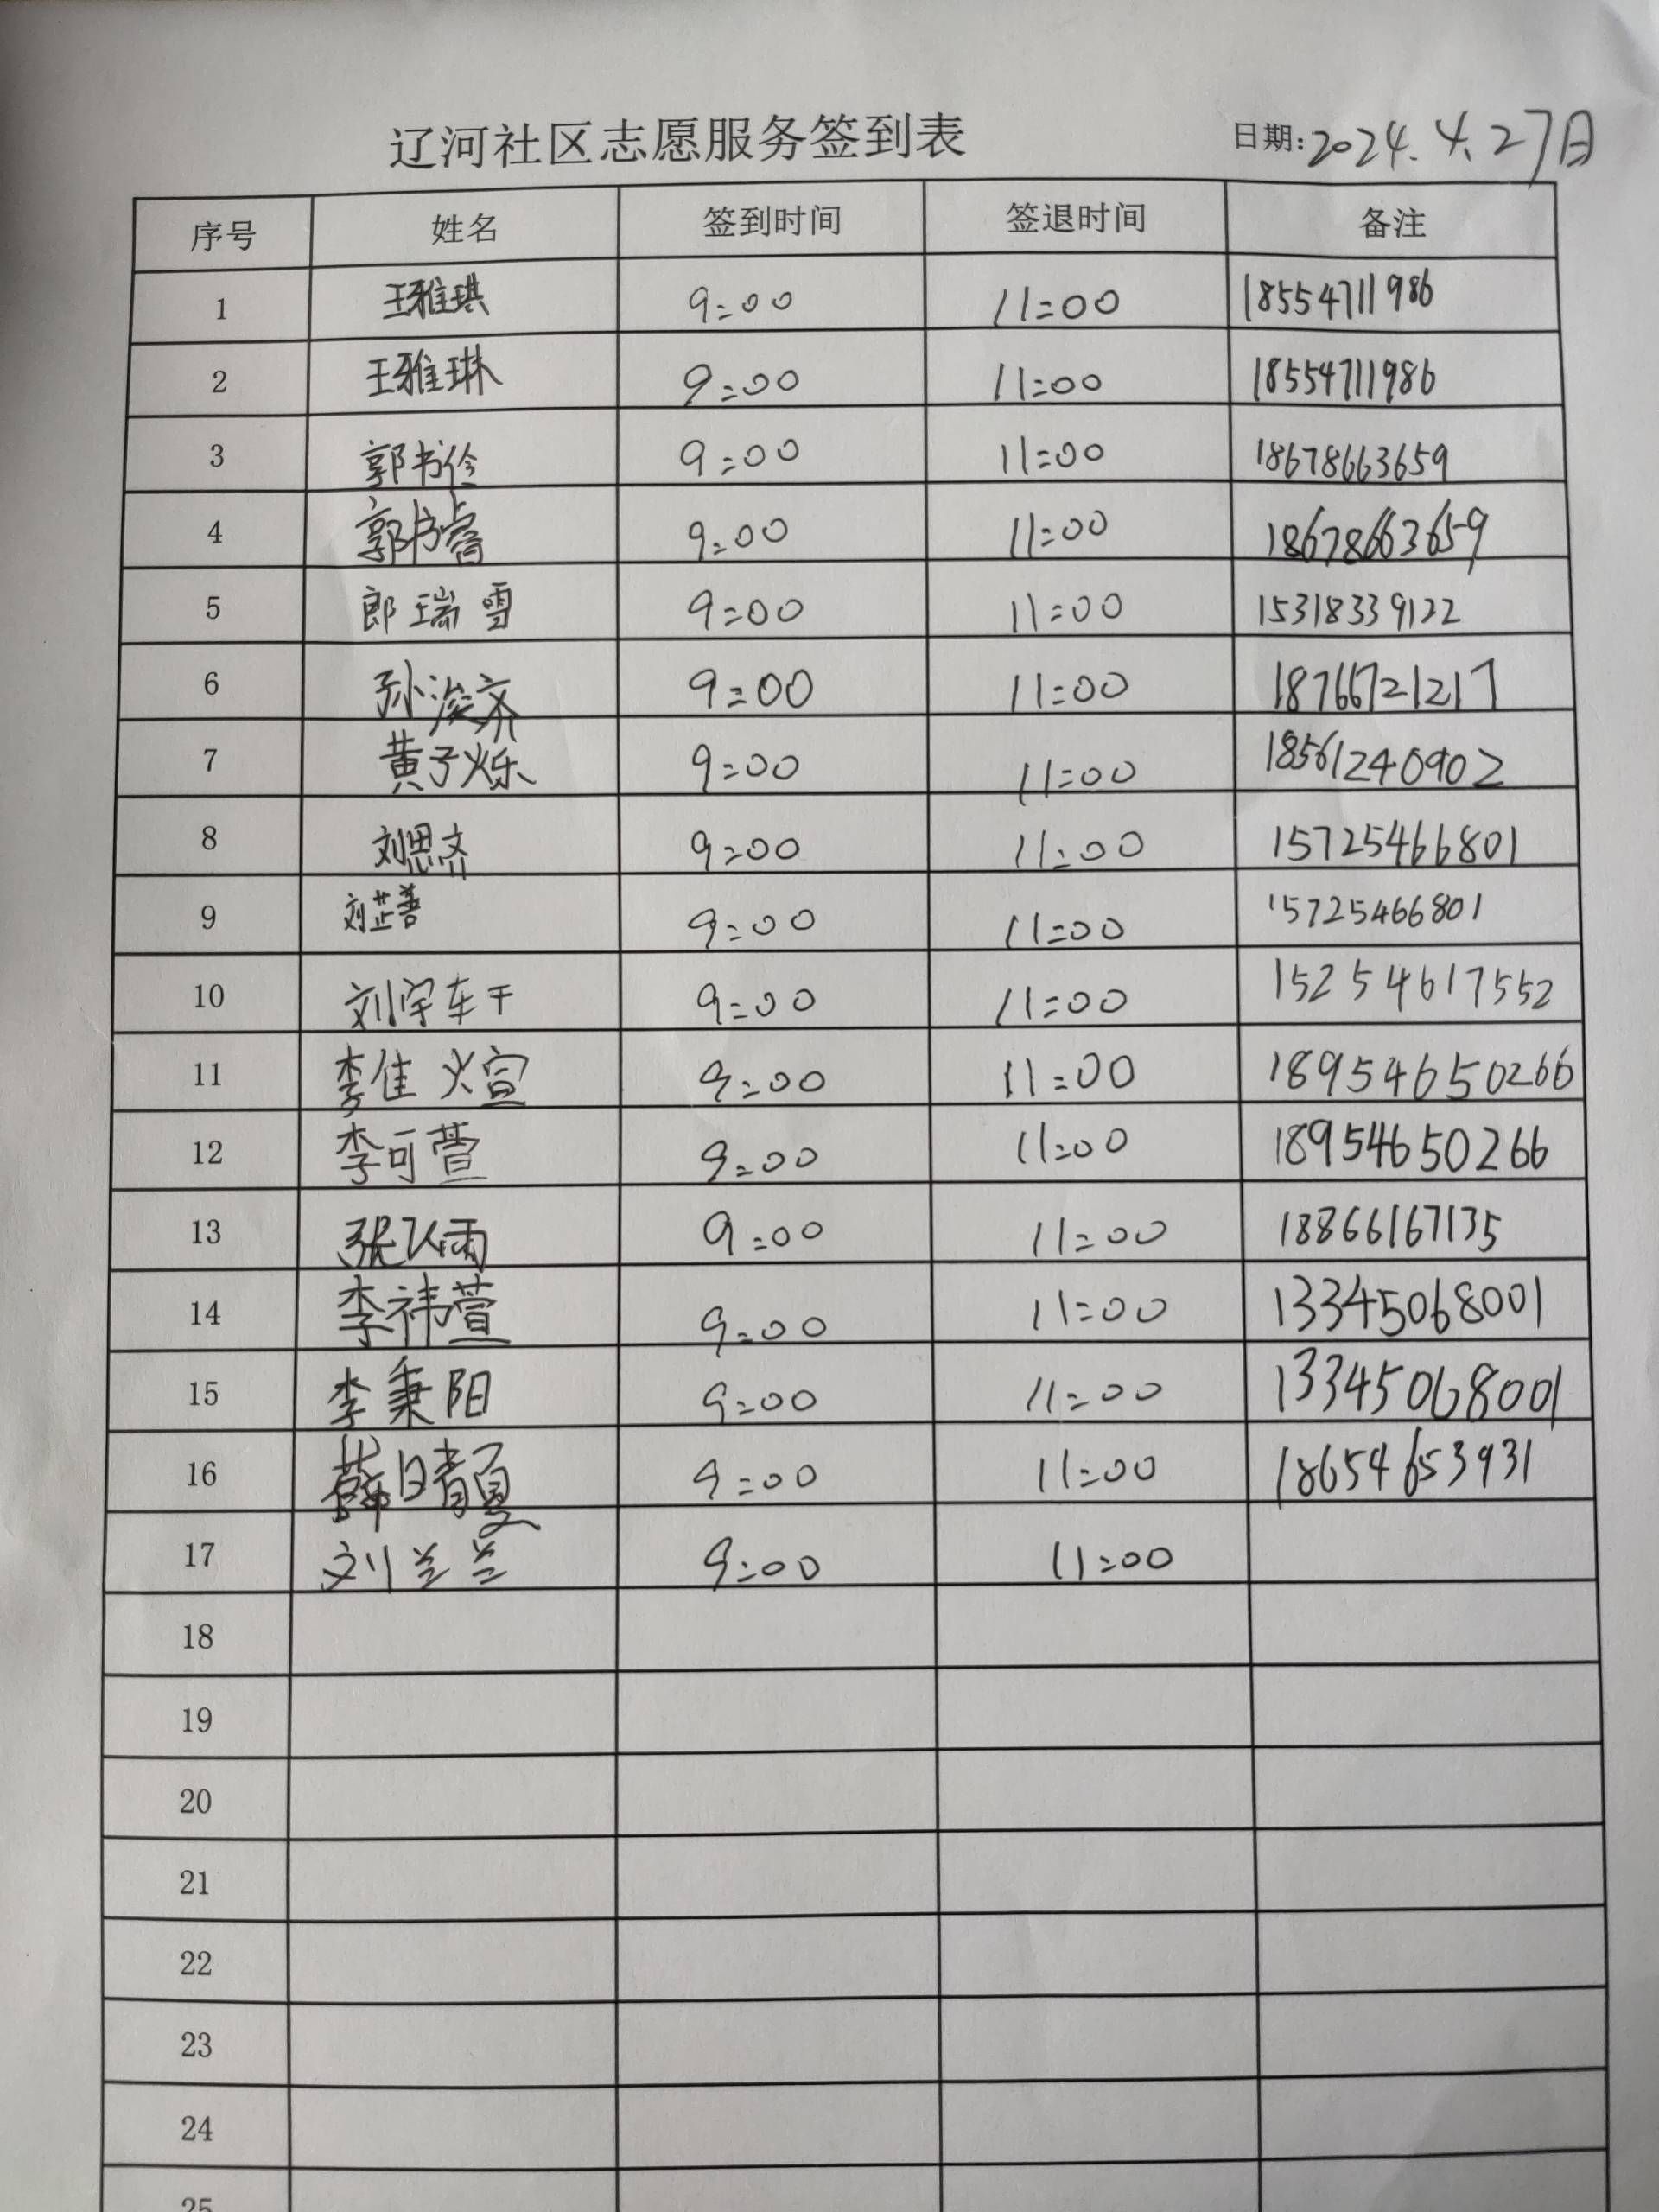 辽河社区志愿服务签到表 日期:2024.4.27日
序号 姓名 签到时间 签退时间 备注
1 王雅琪 9:00 11:00 18554711986
2 王雅琳 9:00 11:00 18554711986
3 郭书伶 9:00 11:00 18678663659
4 郭书睿 9:00 11:00 18678663659
5 郎瑞雪 9:00 11:00 15318339122
6 孙浚齐 9:00 11:00 18766721217
7 黄子烁 9:00 11:00 18561240902
8 刘思齐 9:00 11:00 15725466801
9 刘芷善 9:00 11:00 15725466801
10 刘宇轩 9:00 11:00 15254617552
11 李佳煊 9:00 11:00 18954650266
12 李可萱 9:00 11:00 18954650266
13 张飞雨 9:00 11:00 18866167135
14 李祎萱 9:00 11:00 13345068001
15 李秉阳 9:00 11:00 13345068001
16 薛晴夏 9:00 11:00 18654653931
17 刘兰兰 9:00 11:00
18
19
20
21
22
23
24
25